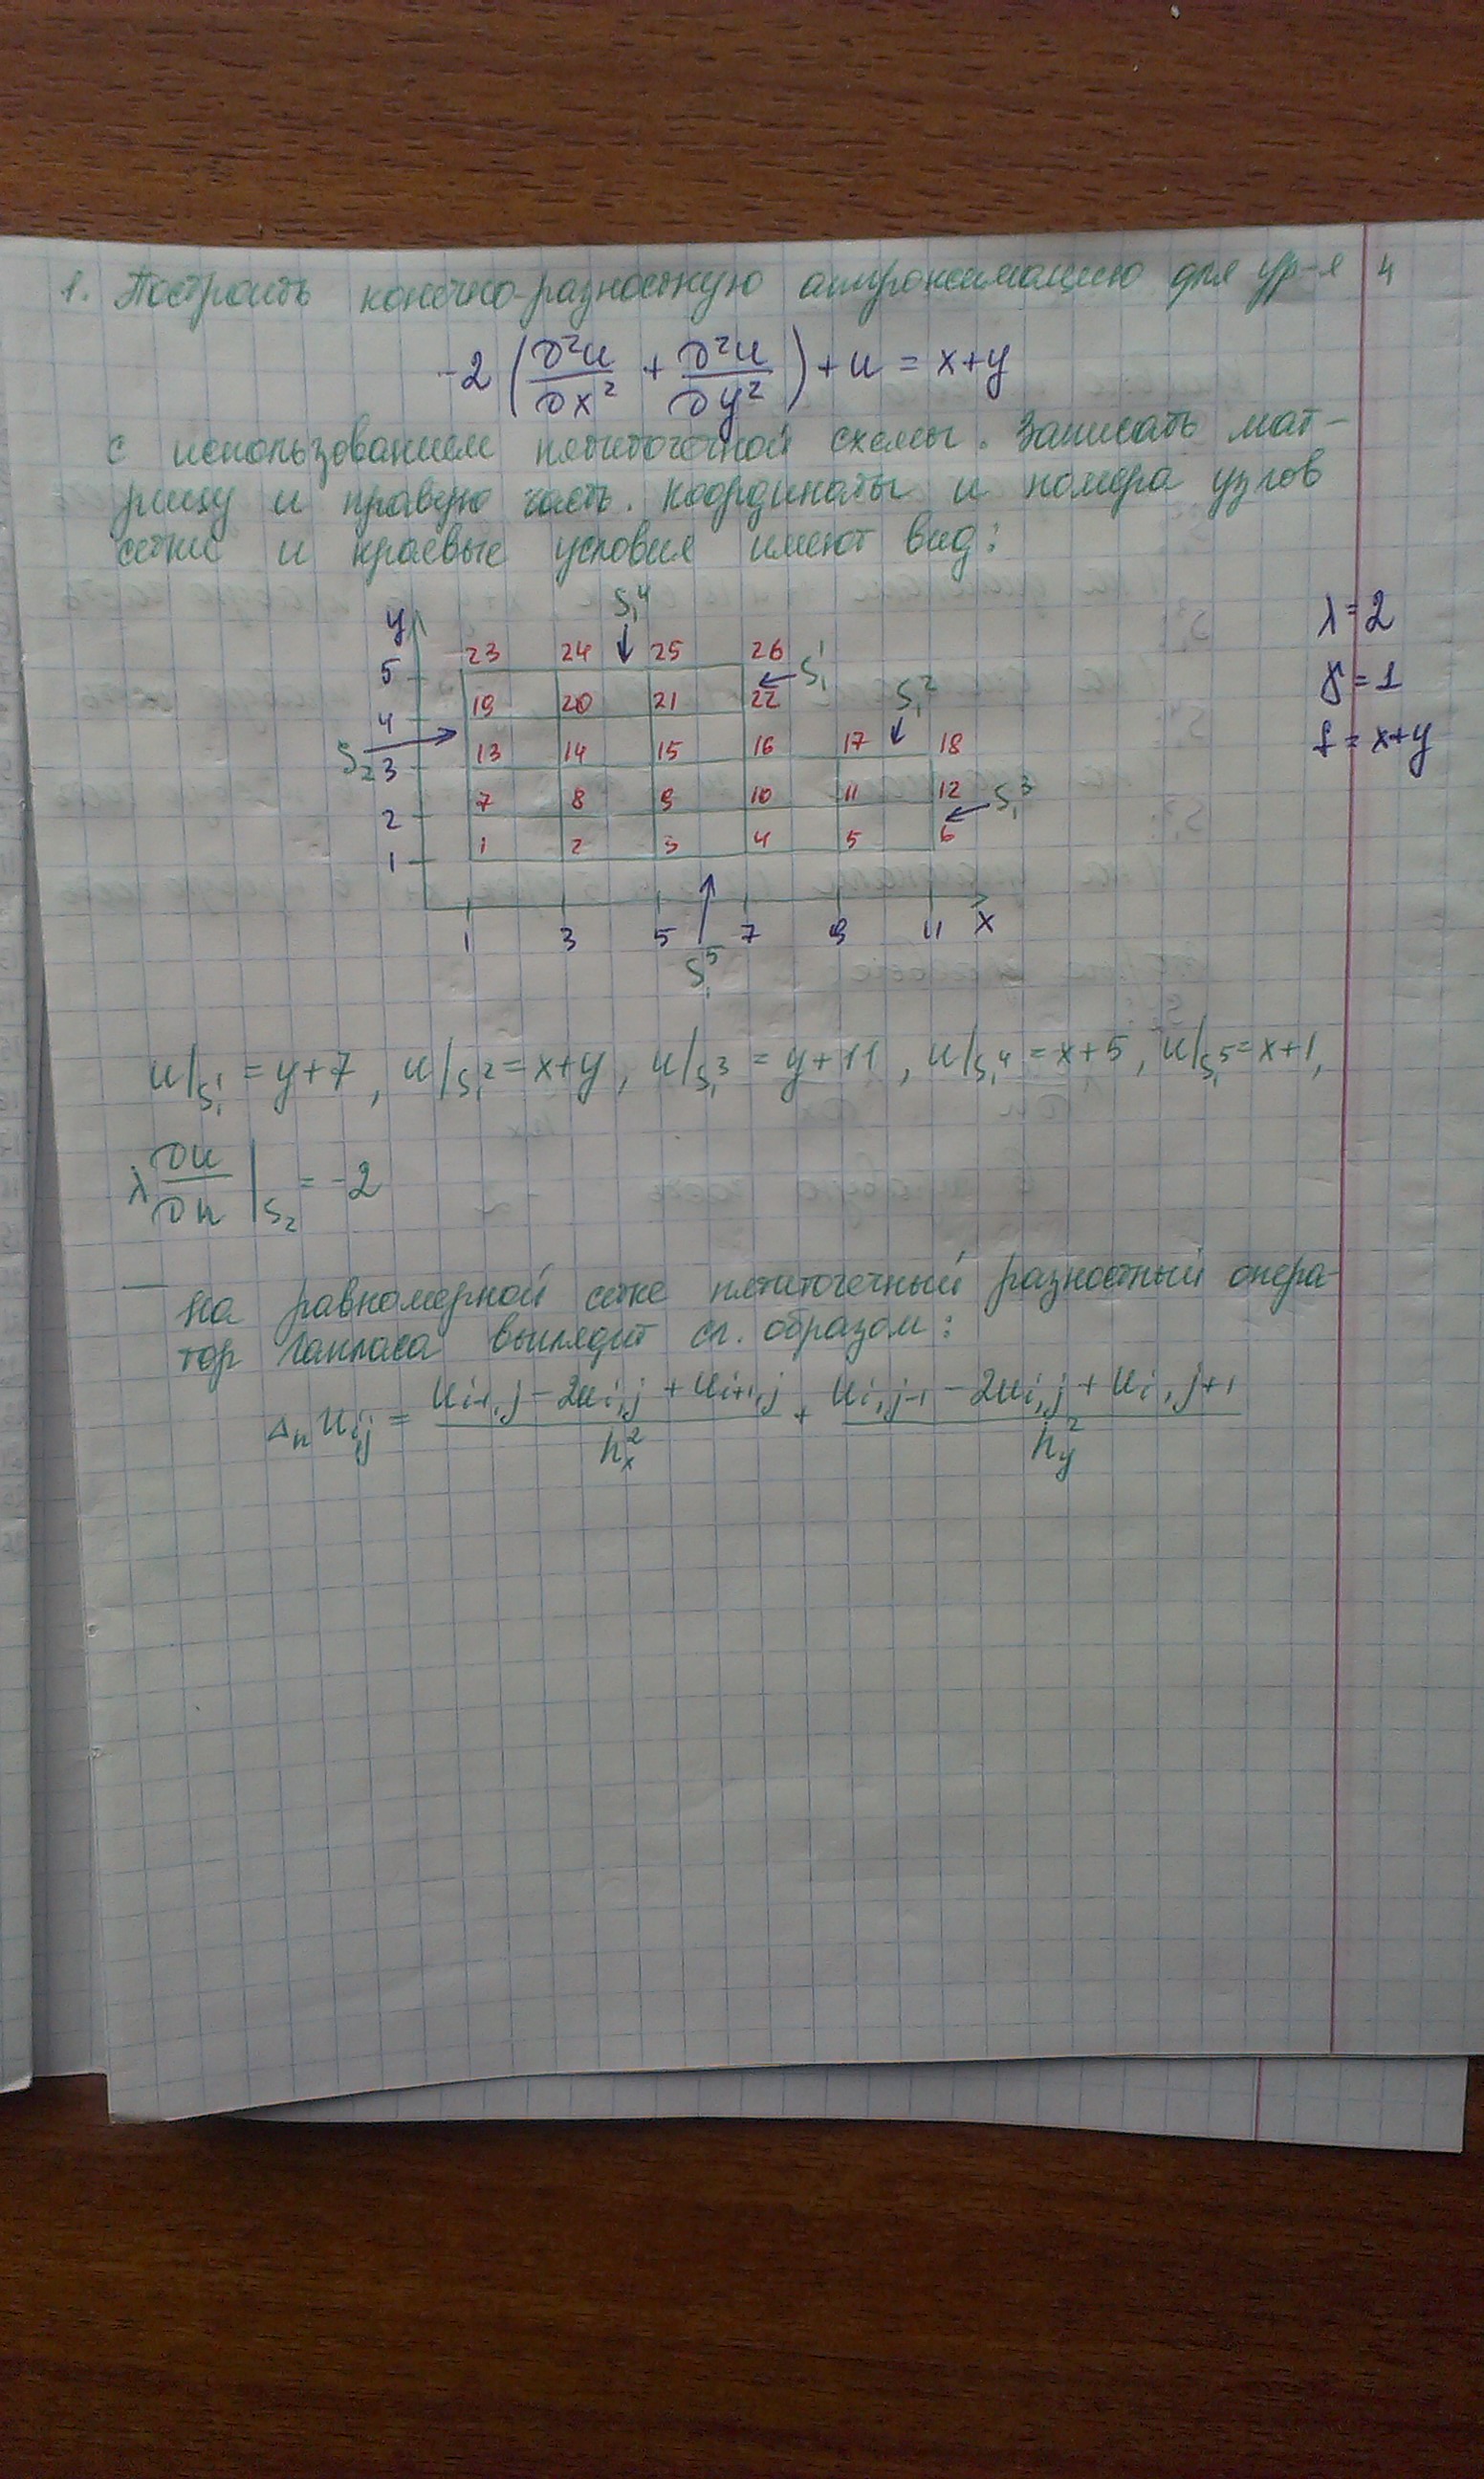 1. Построить конечно-разностную аппроксимацию для ур-я 4
-2 (∂²u/∂x² + ∂²u/∂y²) + u = x+y
с использованием пятиточечной схемы. Записать мат-
рицу и правую часть. Координаты и номера узлов
сетки и краевые условия имеют вид:
y S₁⁴
5 23 24 25 26 S₁¹
4 19 20 21 22 S₁²
S₂ 3 13 14 15 16 17 18
2 7 8 9 10 11 12 S₁³
1 1 2 3 4 5 6
1 3 5 7 9 11 x
S₁⁵
λ = 2
γ = 1
f = x+y
u/S₁¹ = y+7, u/S₁² = x+y, u/S₁³ = y+11, u/S₁⁴ = x+5, u/S₁⁵ = x+1,
λ ∂u/∂n |S₂ = -2
— На равномерной сетке пятиточечный разностный опера-
тор Лапласа выглядит сл. образом:
Δₕ uᵢ,ⱼ = (uᵢ₋₁,ⱼ - 2uᵢ,ⱼ + uᵢ₊₁,ⱼ)/hₓ² + (uᵢ,ⱼ₋₁ - 2uᵢ,ⱼ + uᵢ,ⱼ₊₁)/h_y²